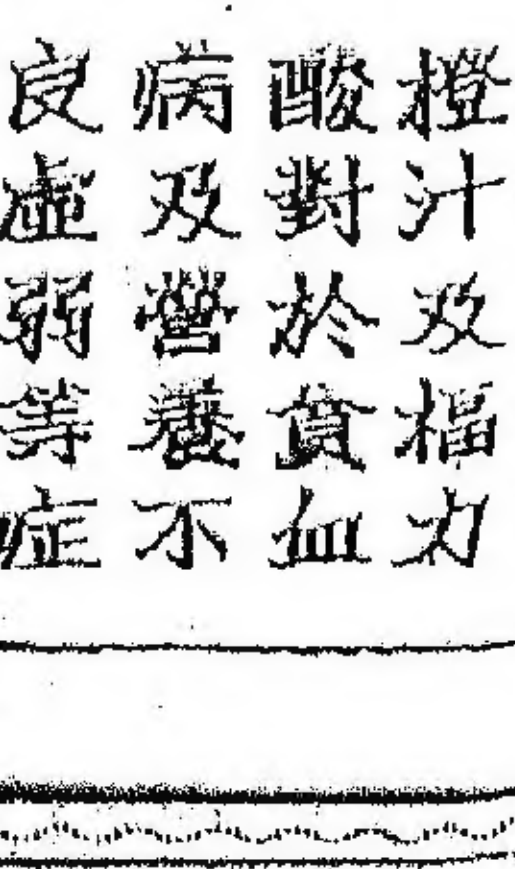 橙汁及楅力
酸對於貧血
病及營養不
良虛弱等症